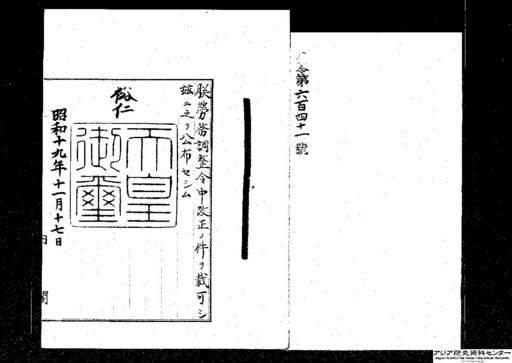 令第六百四十一號
朕勞務調整令中改正ノ件ヲ裁可シ
玆ニ之ヲ公布セシム
裕仁
天皇
御璽
昭和十九年十一月十七日
内閣
アジア歴史資料センター
Japan Center for Asian Historical Records